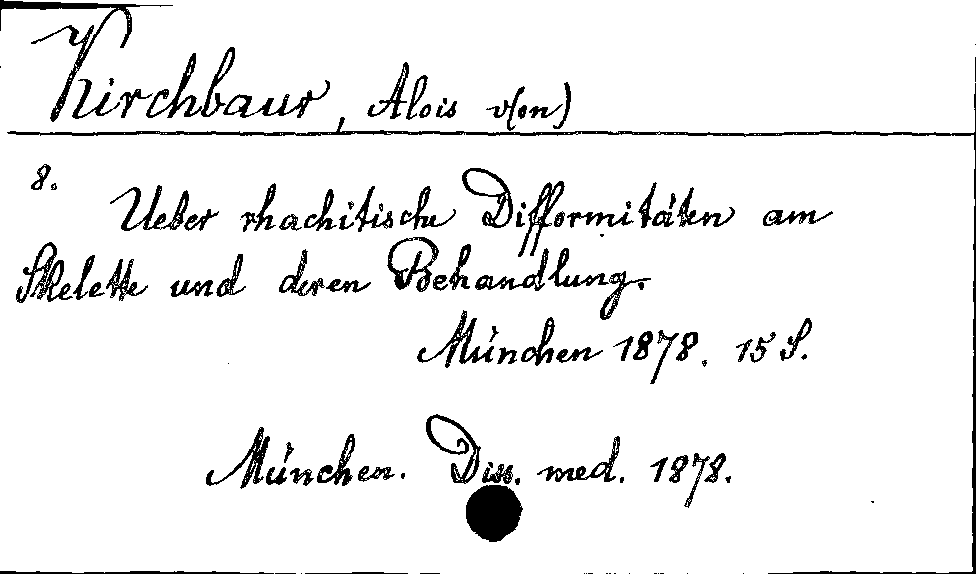 Kirchbaur, Alois v(on)
8.
Ueber rhachitische Difformitäten am
Skelette und deren Behandlung.
München 1878. 15 S.
München. Diss. med. 1878.